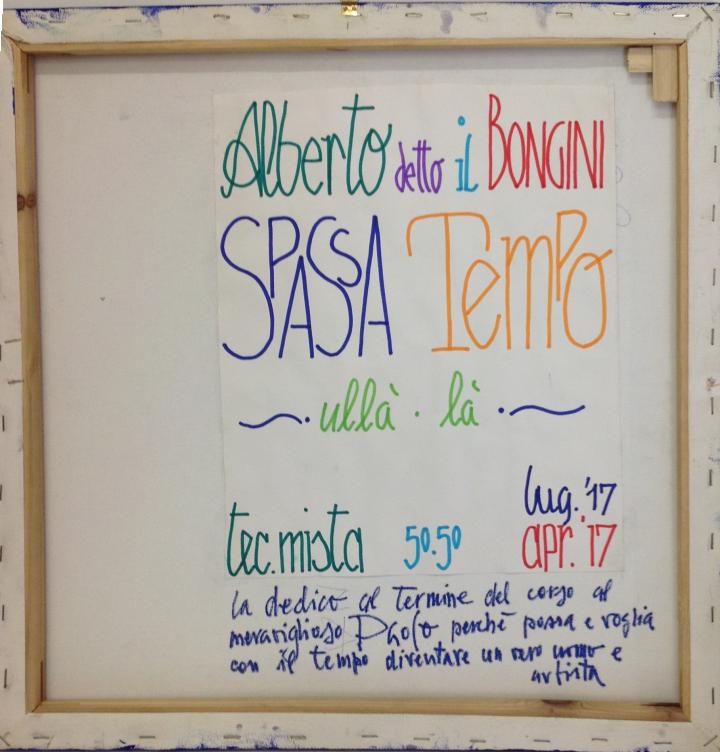 Alberto detto il BONGINI
SPASSA TEMPO
ullà · là
lug. '17
tec. mista 50.50 apr. '17
la dedico al termine del corso al
meraviglioso Paolo perchè possa e voglia
con il tempo diventare un vero uomo e
artista